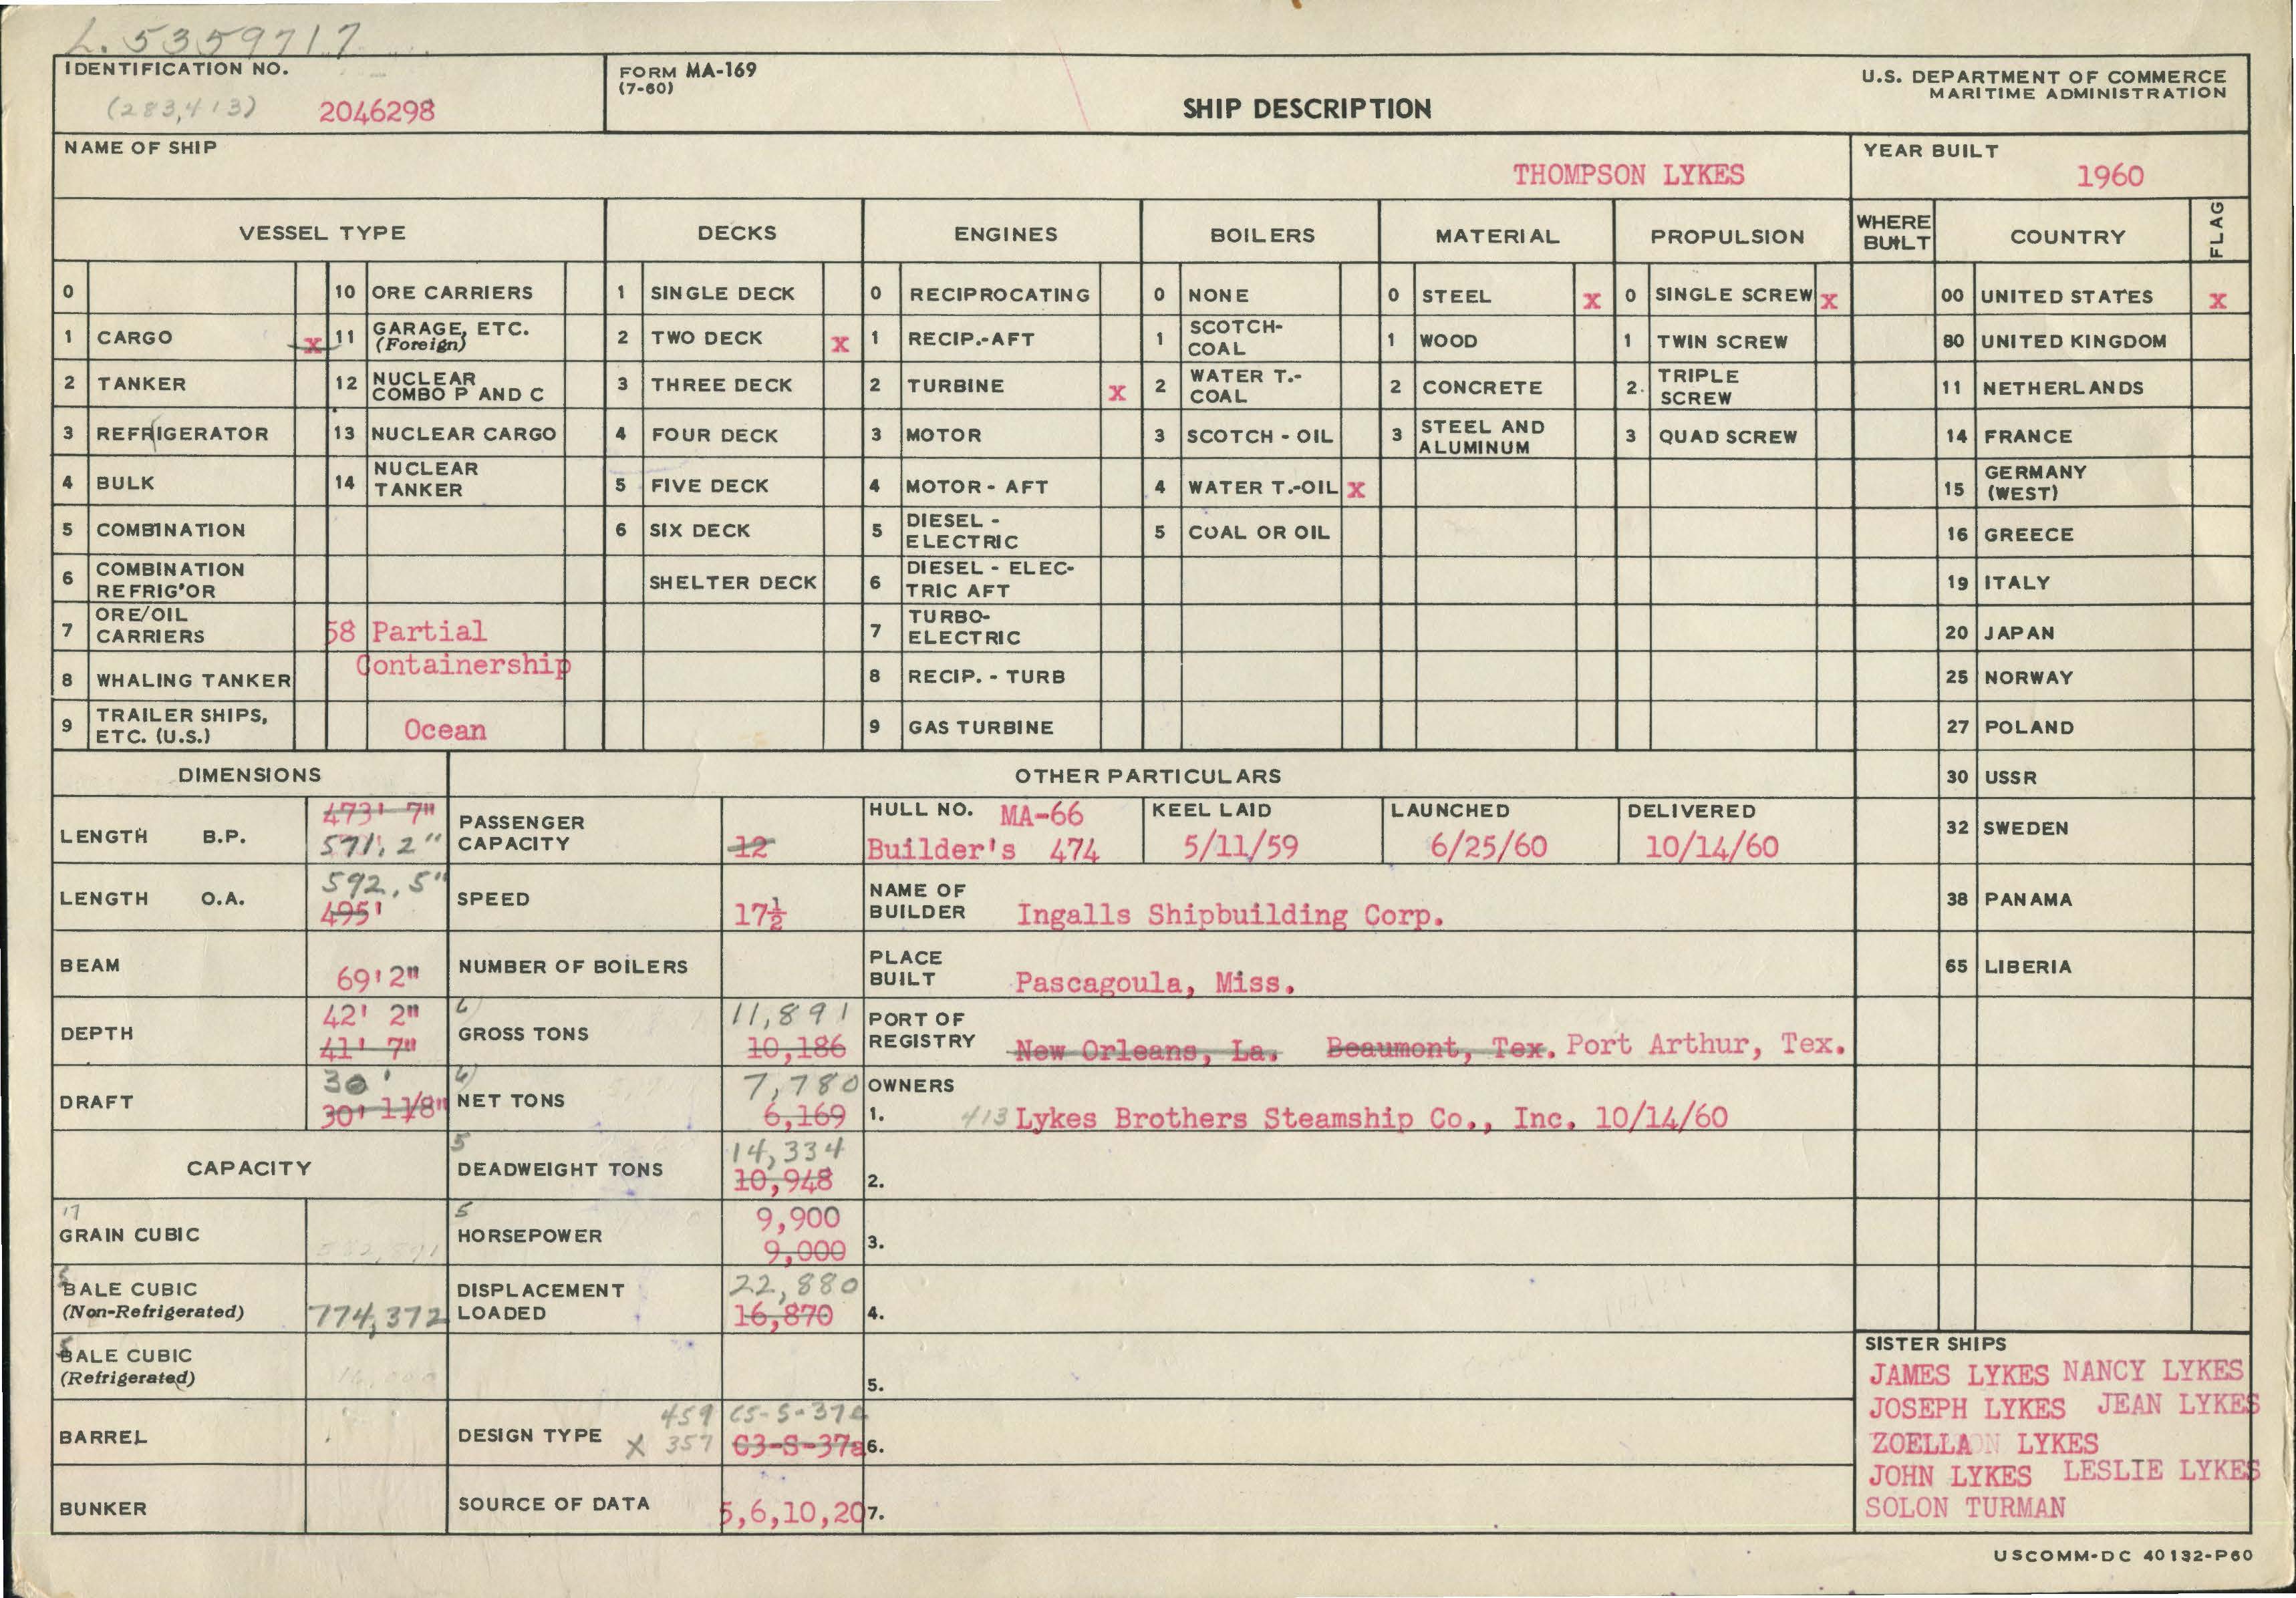 L. 5359717
IDENTIFICATION NO.
(283,413) 2046298
FORM MA-169
(7-60)
SHIP DESCRIPTION
U.S. DEPARTMENT OF COMMERCE
MARITIME ADMINISTRATION
NAME OF SHIP
THOMPSON LYKES
YEAR BUILT
1960
VESSEL TYPE DECKS ENGINES BOILERS MATERIAL PROPULSION WHERE BUILT COUNTRY FLAG
0 10 ORE CARRIERS 1 SINGLE DECK 0 RECIPROCATING 0 NONE 0 STEEL x 0 SINGLE SCREW x 00 UNITED STATES x
1 CARGO x 11 GARAGE, ETC. (Foreign) 2 TWO DECK x 1 RECIP.-AFT 1 SCOTCH-COAL 1 WOOD 1 TWIN SCREW 80 UNITED KINGDOM
2 TANKER 12 NUCLEAR COMBO P AND C 3 THREE DECK 2 TURBINE x 2 WATER T.-COAL 2 CONCRETE 2. TRIPLE SCREW 11 NETHERLANDS
3 REFRIGERATOR 13 NUCLEAR CARGO 4 FOUR DECK 3 MOTOR 3 SCOTCH - OIL 3 STEEL AND ALUMINUM 3 QUAD SCREW 14 FRANCE
4 BULK 14 NUCLEAR TANKER 5 FIVE DECK 4 MOTOR - AFT 4 WATER T.-OIL x 15 GERMANY (WEST)
5 COMBINATION 6 SIX DECK 5 DIESEL - ELECTRIC 5 COAL OR OIL 16 GREECE
6 COMBINATION REFRIG'OR SHELTER DECK 6 DIESEL - ELECTRIC AFT 19 ITALY
7 ORE/OIL CARRIERS 58 Partial 7 TURBO-ELECTRIC 20 JAPAN
8 WHALING TANKER Containership 8 RECIP. - TURB 25 NORWAY
9 TRAILER SHIPS, ETC. (U.S.) Ocean 9 GAS TURBINE 27 POLAND
DIMENSIONS OTHER PARTICULARS 30 USSR
LENGTH B.P. 473' 7" 571, 2" PASSENGER CAPACITY 12 HULL NO. MA-66 Builder's 474 KEEL LAID 5/11/59 LAUNCHED 6/25/60 DELIVERED 10/14/60 32 SWEDEN
LENGTH O.A. 592, 5" 495' SPEED 17½ NAME OF BUILDER Ingalls Shipbuilding Corp. 38 PANAMA
BEAM 69'2" NUMBER OF BOILERS PLACE BUILT Pascagoula, Miss. 65 LIBERIA
DEPTH 42' 2" 41' 7" 6) GROSS TONS 11,891 10,186 PORT OF REGISTRY New Orleans, La. Beaumont, Tex. Port Arthur, Tex.
DRAFT 30' 30' 11/8" 6) NET TONS 7,780 6,169 OWNERS 1. 413 Lykes Brothers Steamship Co., Inc. 10/14/60
CAPACITY 5 DEADWEIGHT TONS 14,334 10,948 2.
17 GRAIN CUBIC 5 HORSEPOWER 9,900 9,000 3.
5 BALE CUBIC (Non-Refrigerated) 774,372 DISPLACEMENT LOADED 22,880 16,870 4.
5 BALE CUBIC (Refrigerated) 5.
BARREL DESIGN TYPE 459 X 357 C5-S-37e C3-S-37a 6.
BUNKER SOURCE OF DATA 5,6,10,20 7.
SISTER SHIPS
JAMES LYKES NANCY LYKES
JOSEPH LYKES JEAN LYKES
ZOELLA LYKES
JOHN LYKES LESLIE LYKES
SOLON TURMAN
USCOMM-DC 40132-P60